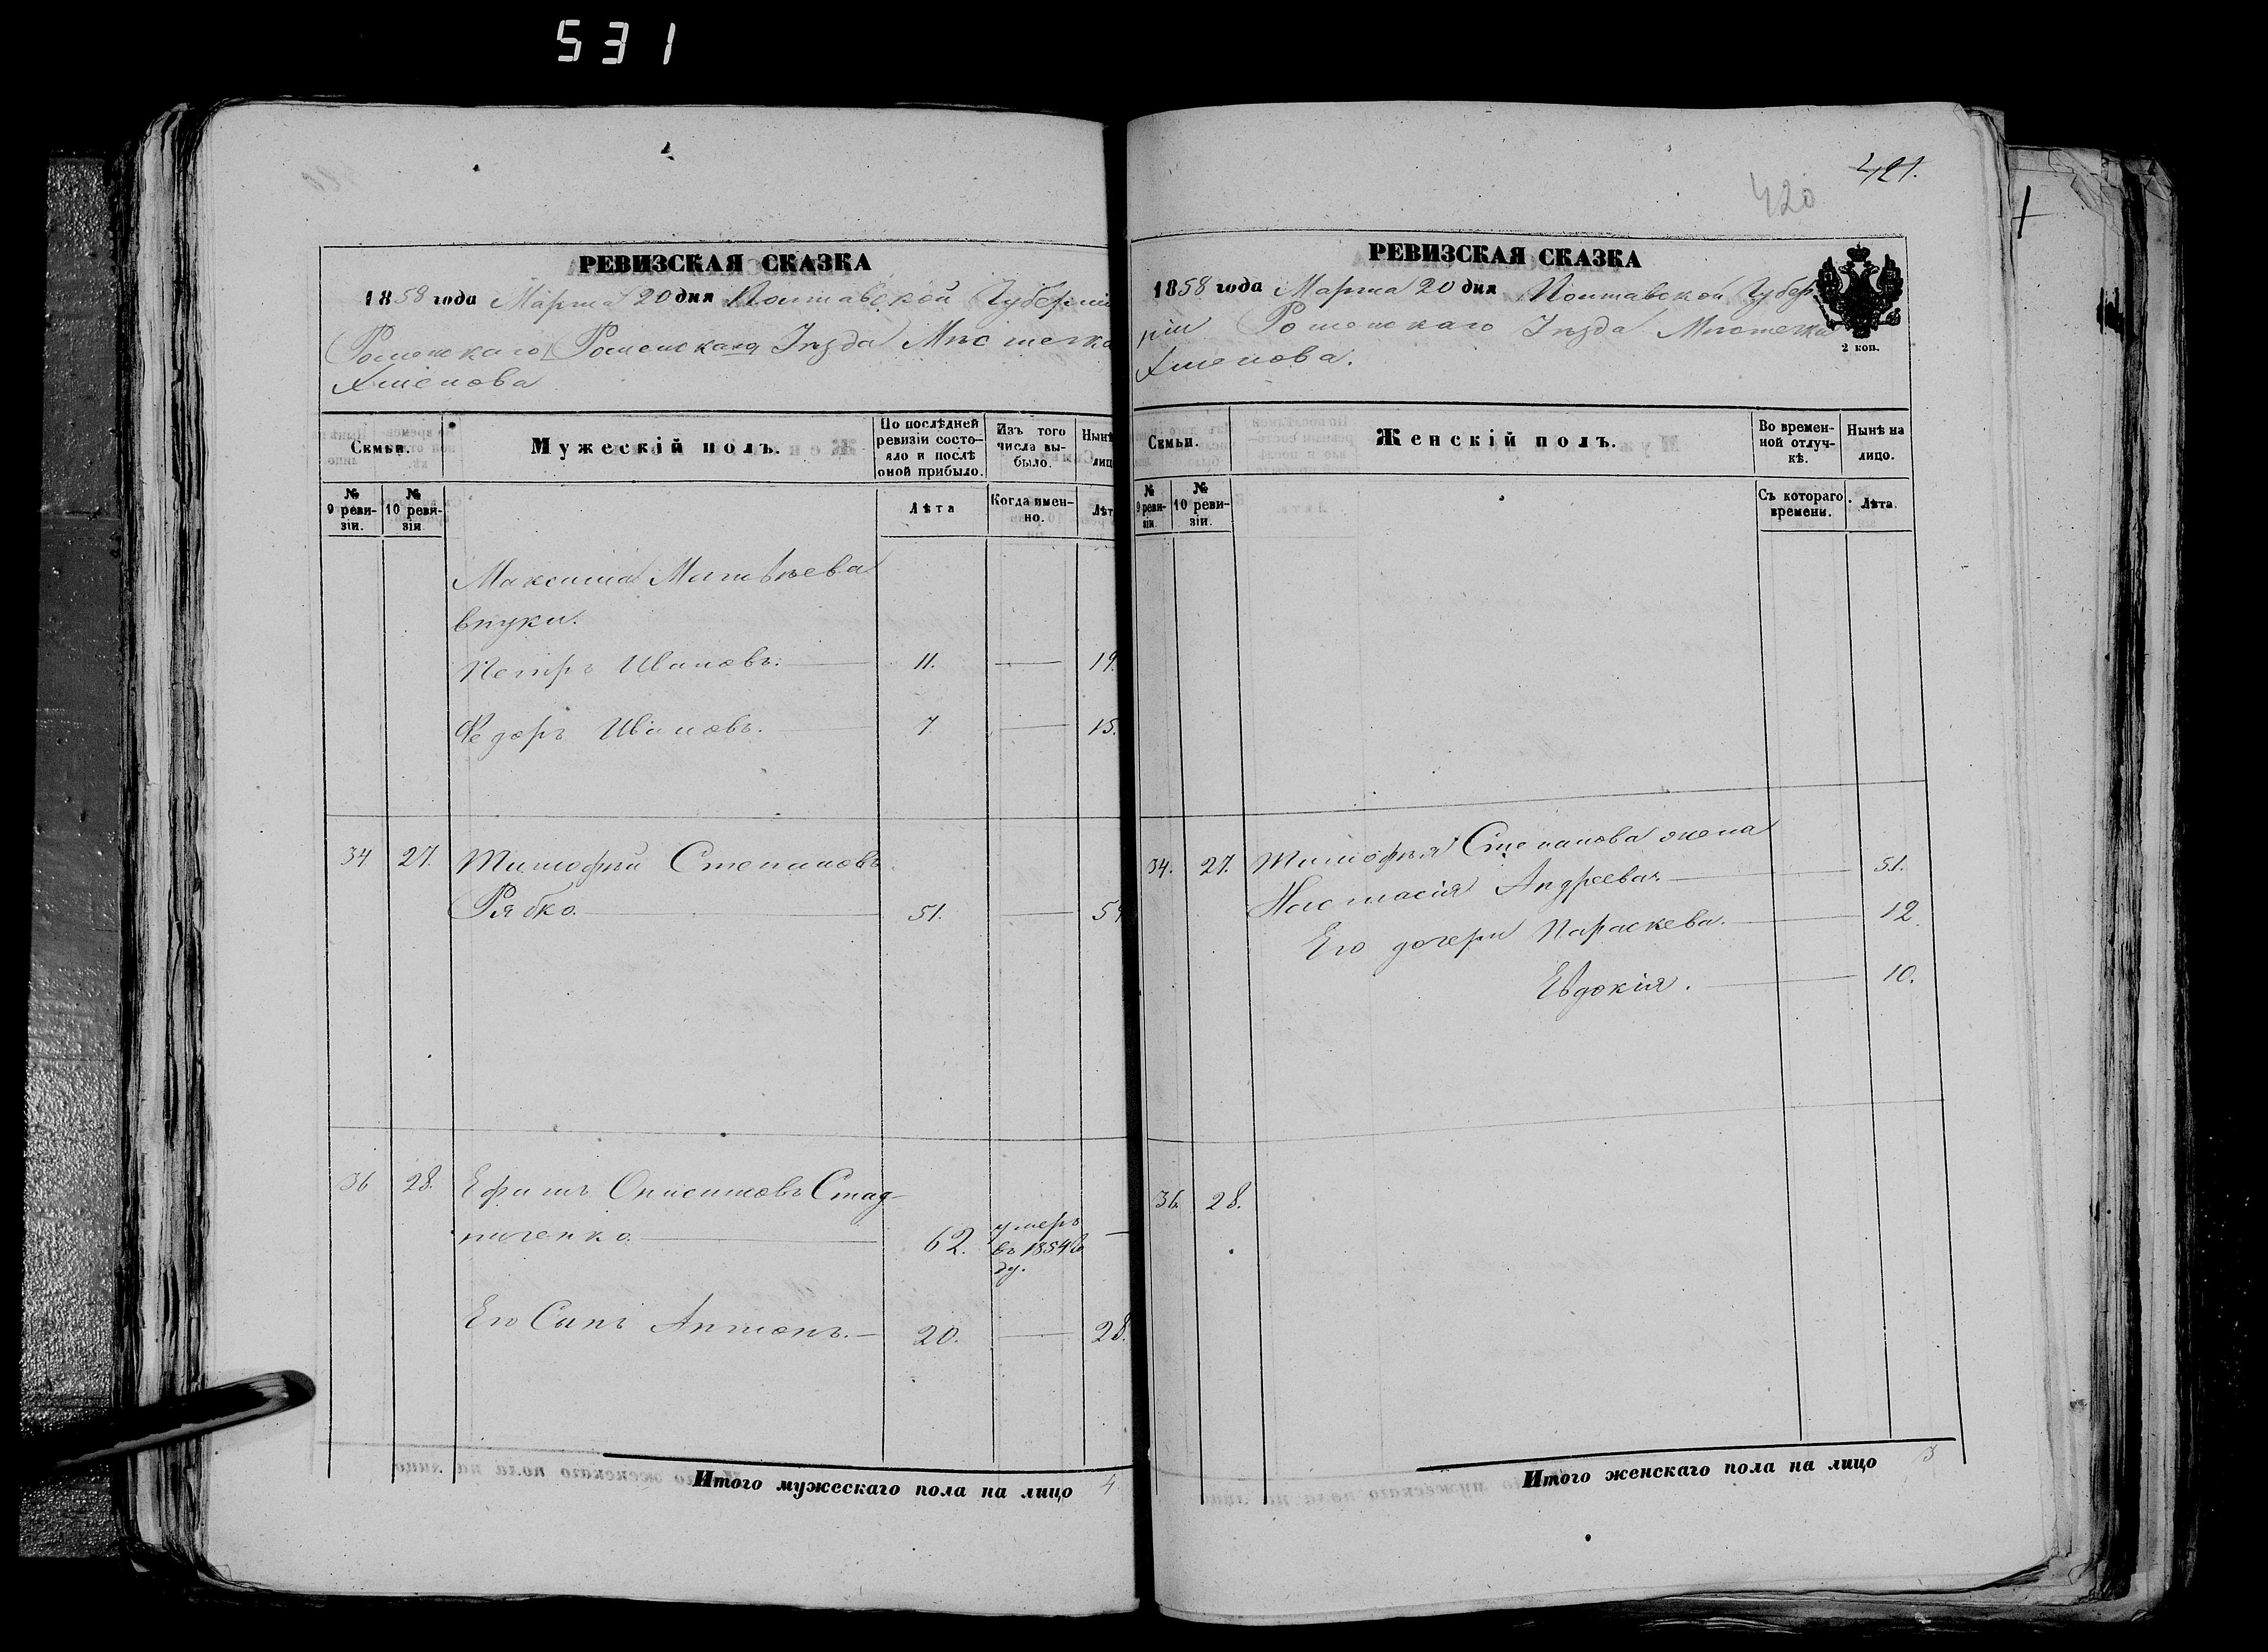 531
РЕВИЗСКАЯ СКАЗКА
1858 года Марта 20 дня Полтавской Губерніи
Роменскаго Роменскаго Уѣзда Мѣстечка
Хмелова
Семьи.
Мужескій полъ.
По послѣдней ревизіи состояло и послѣ оной прибыло.
Изъ того числа выбыло.
Нынѣ лиц
№ 9 ревизіи.
№ 10 ревизіи
Лѣта
Когда именно.
Лѣт
Максима Матвѣева
внуки.
Петръ Ивановъ. 11. — 19.
Федоръ Ивановъ. 7 — 15.
34 27. Тимофей Степановъ
Рябко. 51. — 59
36 28. Ефимъ Онисимовъ Стад-
ниченко. 62. умеръ въ 1854 го ду. —
Его Сынъ Антонъ. 20. — 28.
Итого мужескаго пола на лицо 4
421.
420
РЕВИЗСКАЯ СКАЗКА
1858 года Марта 20 дня Полтавской Губер
ніи Роменскаго Уѣзда Мѣстечка
Хмелова.
2 коп.
Семьи.
Женскій полъ.
Во временной отлучкѣ.
Нынѣ на лицо.
№ 9 ревизіи
№ 10 ревизіи.
Съ котораго времени.
Лѣта.
34. 27. Тимофея Степанова жена
Настасія Андреева. — 51.
Его дочери Параскева. — 12
Евдокія. — 10.
36. 28.
Итого женскаго пола на лицо 3